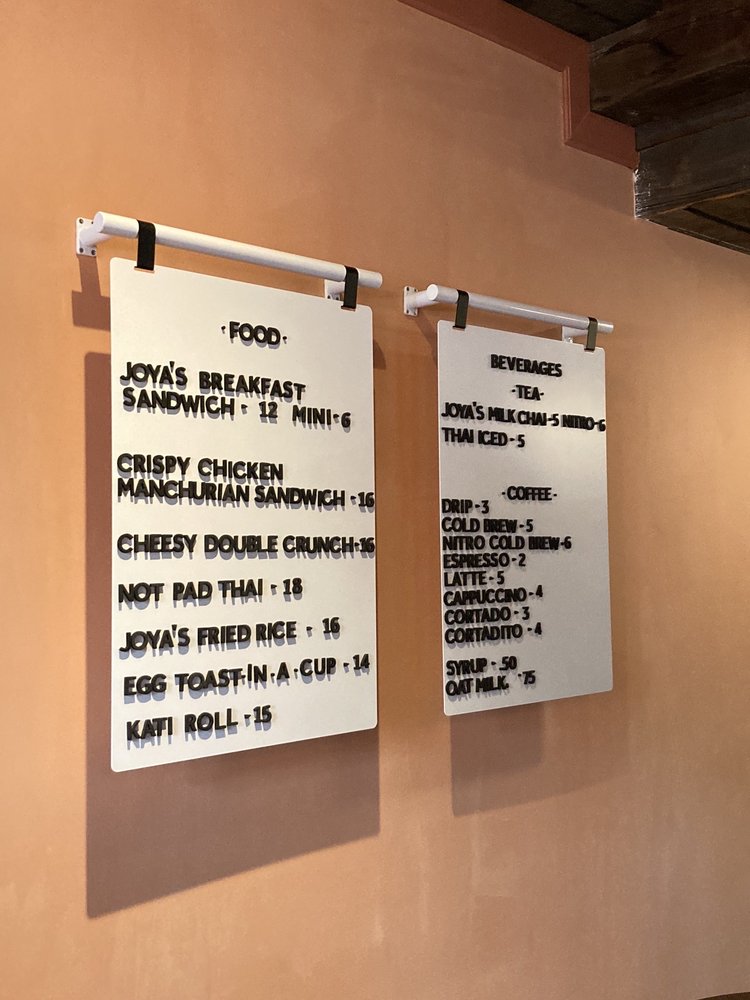 ·FOOD·
JOYA'S BREAKFAST
SANDWICH - 12 MINI-6
CRISPY CHICKEN
MANCHURIAN SANDWICH -16
CHEESY DOUBLE CRUNCH-16
NOT PAD THAI - 18
JOYA'S FRIED RICE - 16
EGG TOAST-IN-A-CUP -14
KATI ROLL -15
BEVERAGES
-TEA-
JOYA'S MILK CHAI-5 NITRO-6
THAI ICED-5
-COFFEE-
DRIP-3
COLD BREW-5
NITRO COLD BREW-6
ESPRESSO-2
LATTE-5
CAPPUCCINO-4
CORTADO-3
CORTADITO-4
SYRUP - .50
OAT MILK. .75